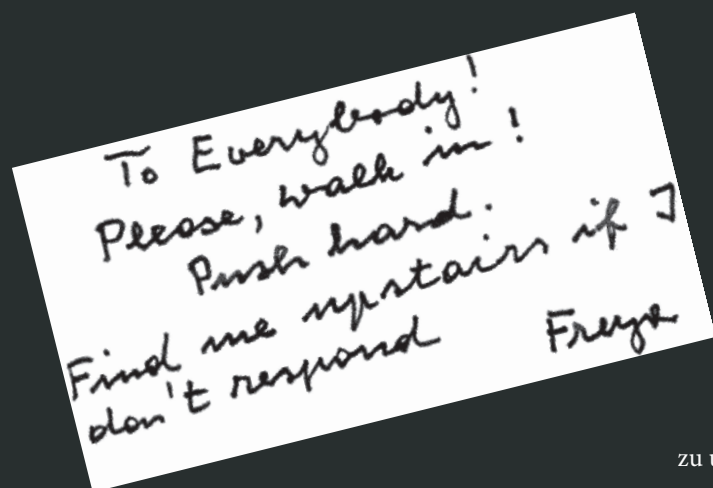 To Everybody!
Please, walk in!
Push hard.
Find me upstairs if I
don't respond
Freya
zu